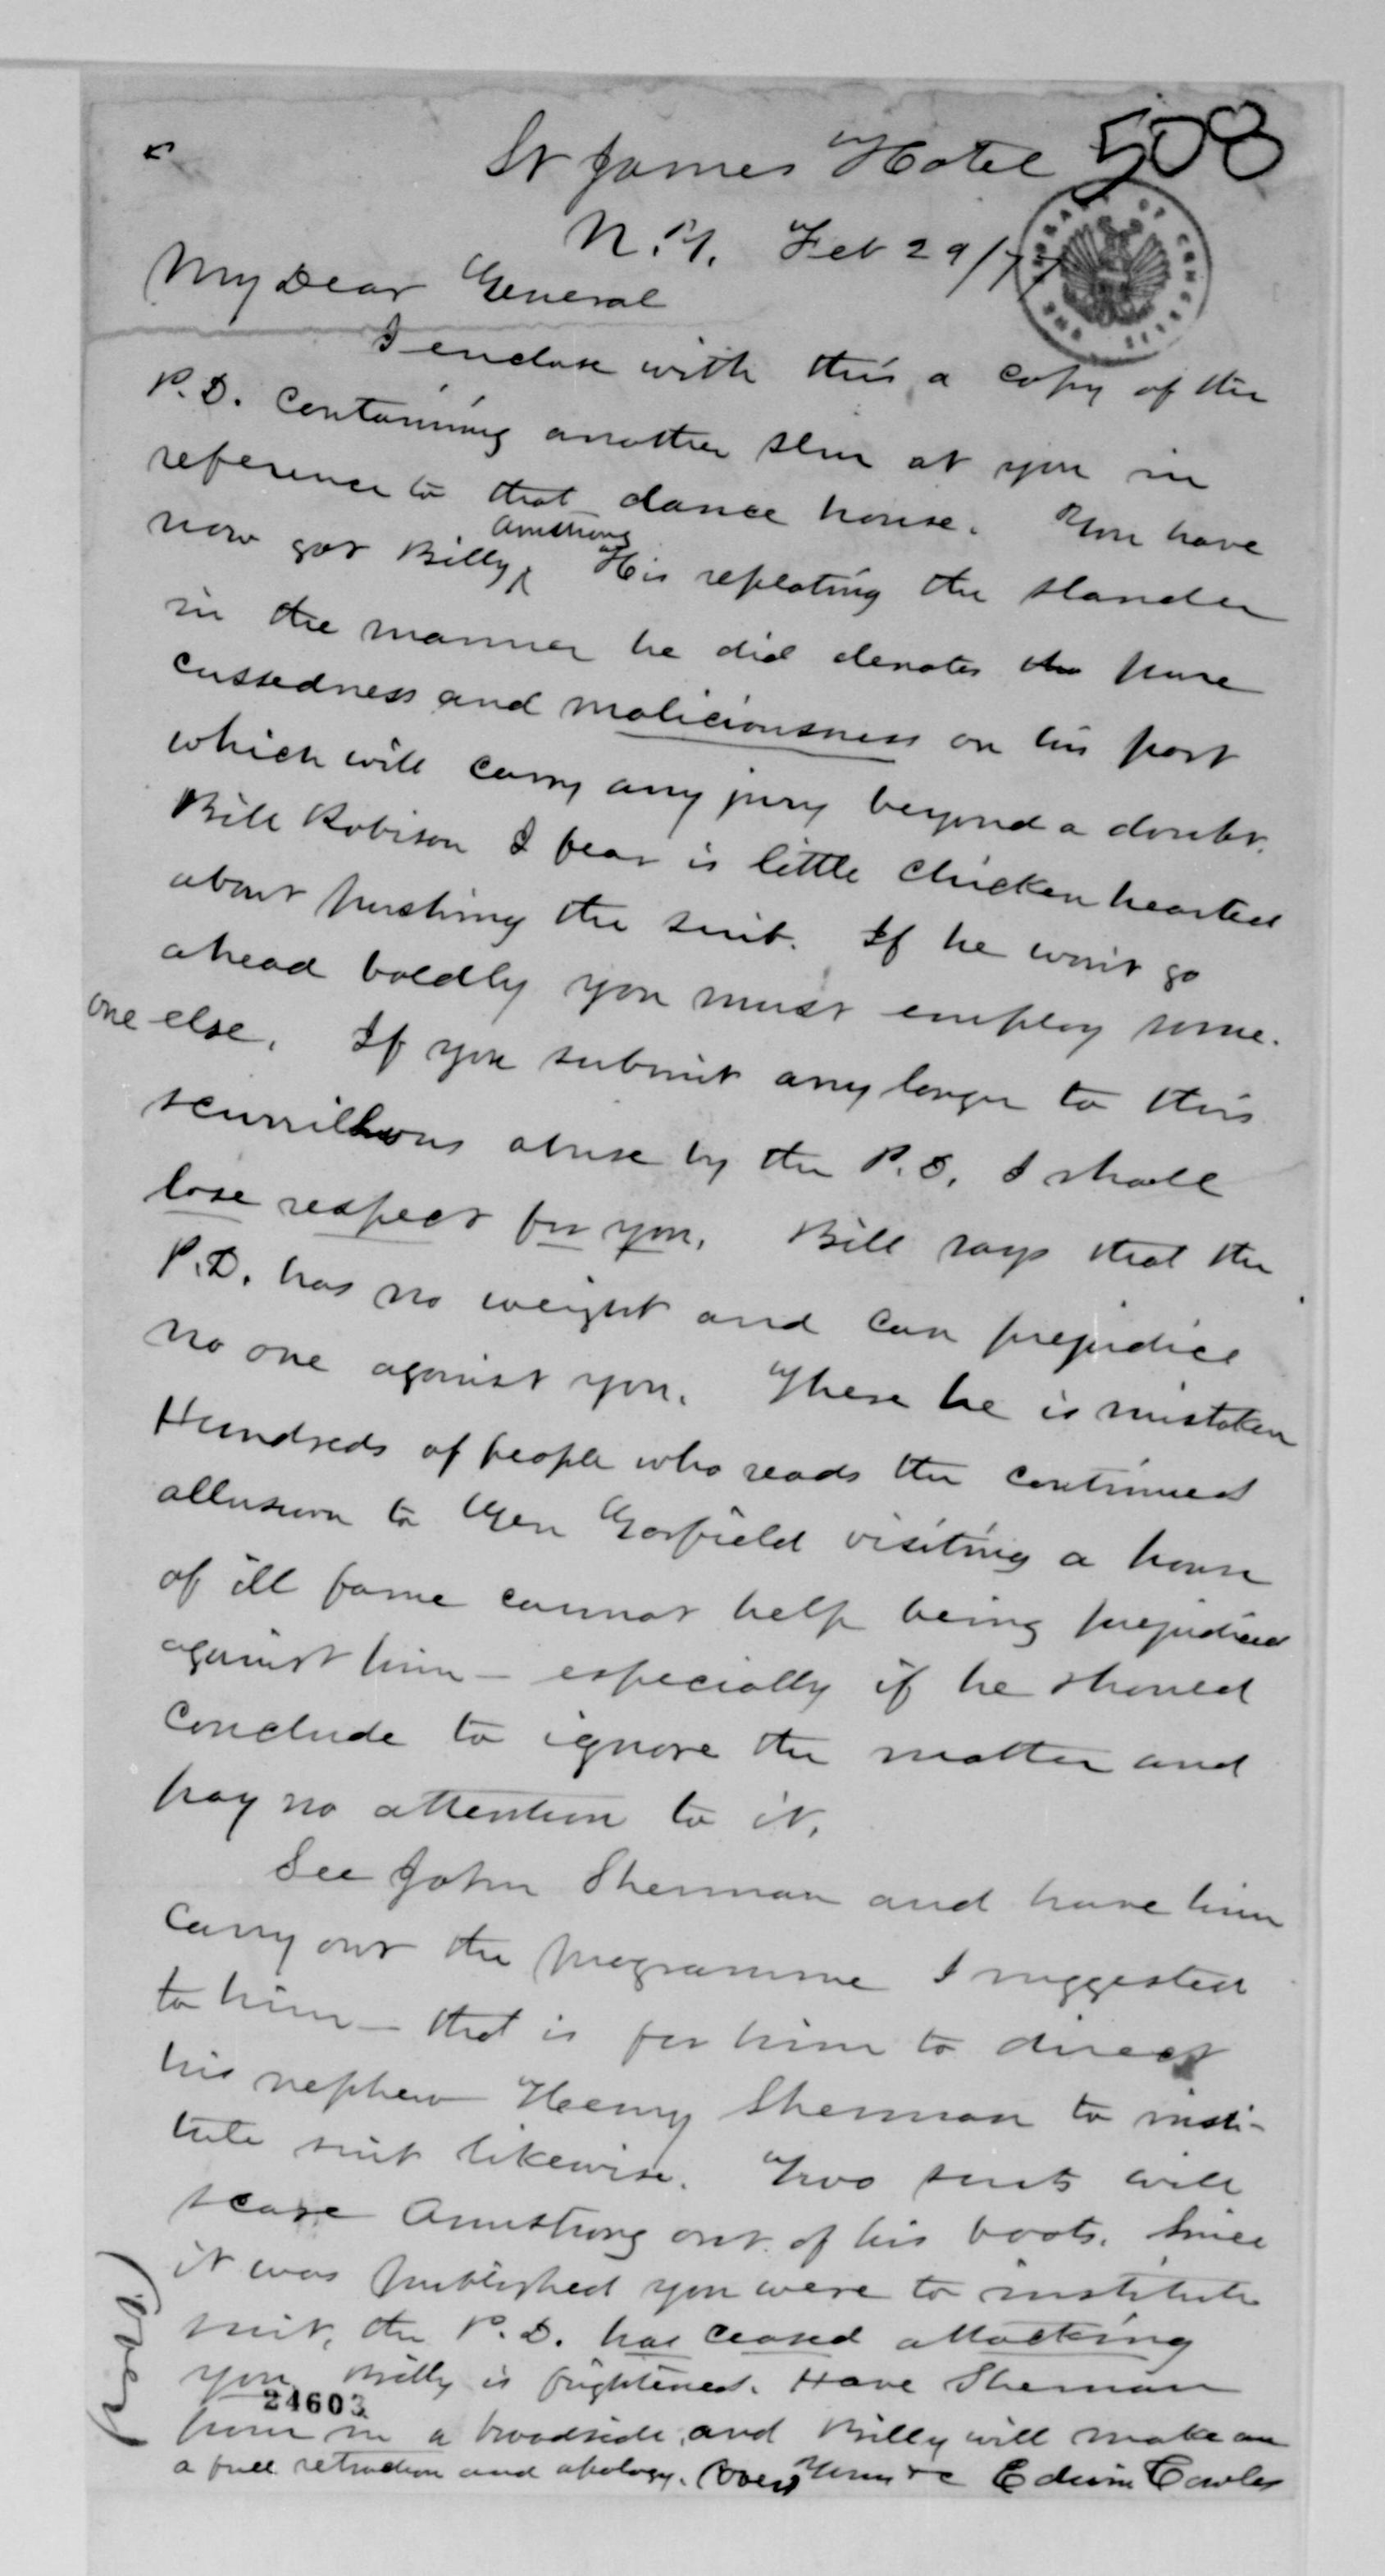 508
St James Hotel
N.Y. Feb 29/77
My Dear General
I enclose with this a copy of the
P.D. containing another slur at you in
reference to that dance house. You have
now got Billy Armstrong His repeating the slander
in the manner he did denotes the pure
cussedness and maliciousness on his part
which will carry any jury beyond a doubt.
Bill Robison I fear is little chicken hearted
about pushing the suit. If he won't go
ahead boldly you must employ some-
one else. If you submit any longer to this
scurrillous abuse by the P.D. I shall
lose respect for you. Bill says that the
P.D. has no weight and can prejudice
no one against you. There he is mistaken
Hundreds of people who reads the continued
allusion to Gen Garfield visiting a house
of ill fame cannot help being prejudiced
against him — especially if he should
conclude to ignore the matter and
pay no attention to it.
See John Sherman and have him
carry out the programme I suggested
to him — that is for him to direct
his nephew Henry Sherman to insti-
tute suit likewise. Two suits will
scare Armstrong out of his boots. Since
it was published you were to institute
suit, the P.D. has ceased attacking
you Billy is frightened. Have Sherman
24603
pour in a broadside, and Billy will make an
a full retraction and apology. (Over) Yours &c Edwin Cowles